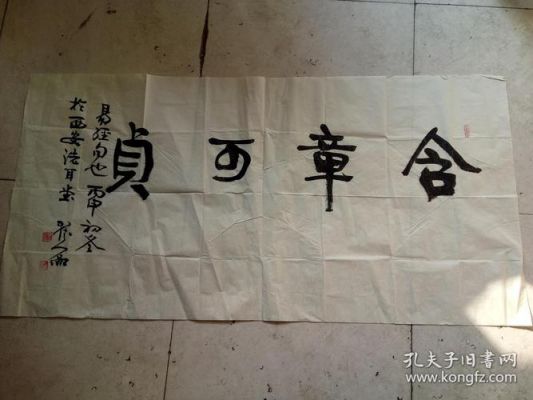 含章可貞
易经句也 丙申初冬
於西安浩耳堂
孔夫子旧书网
www.kongfz.com